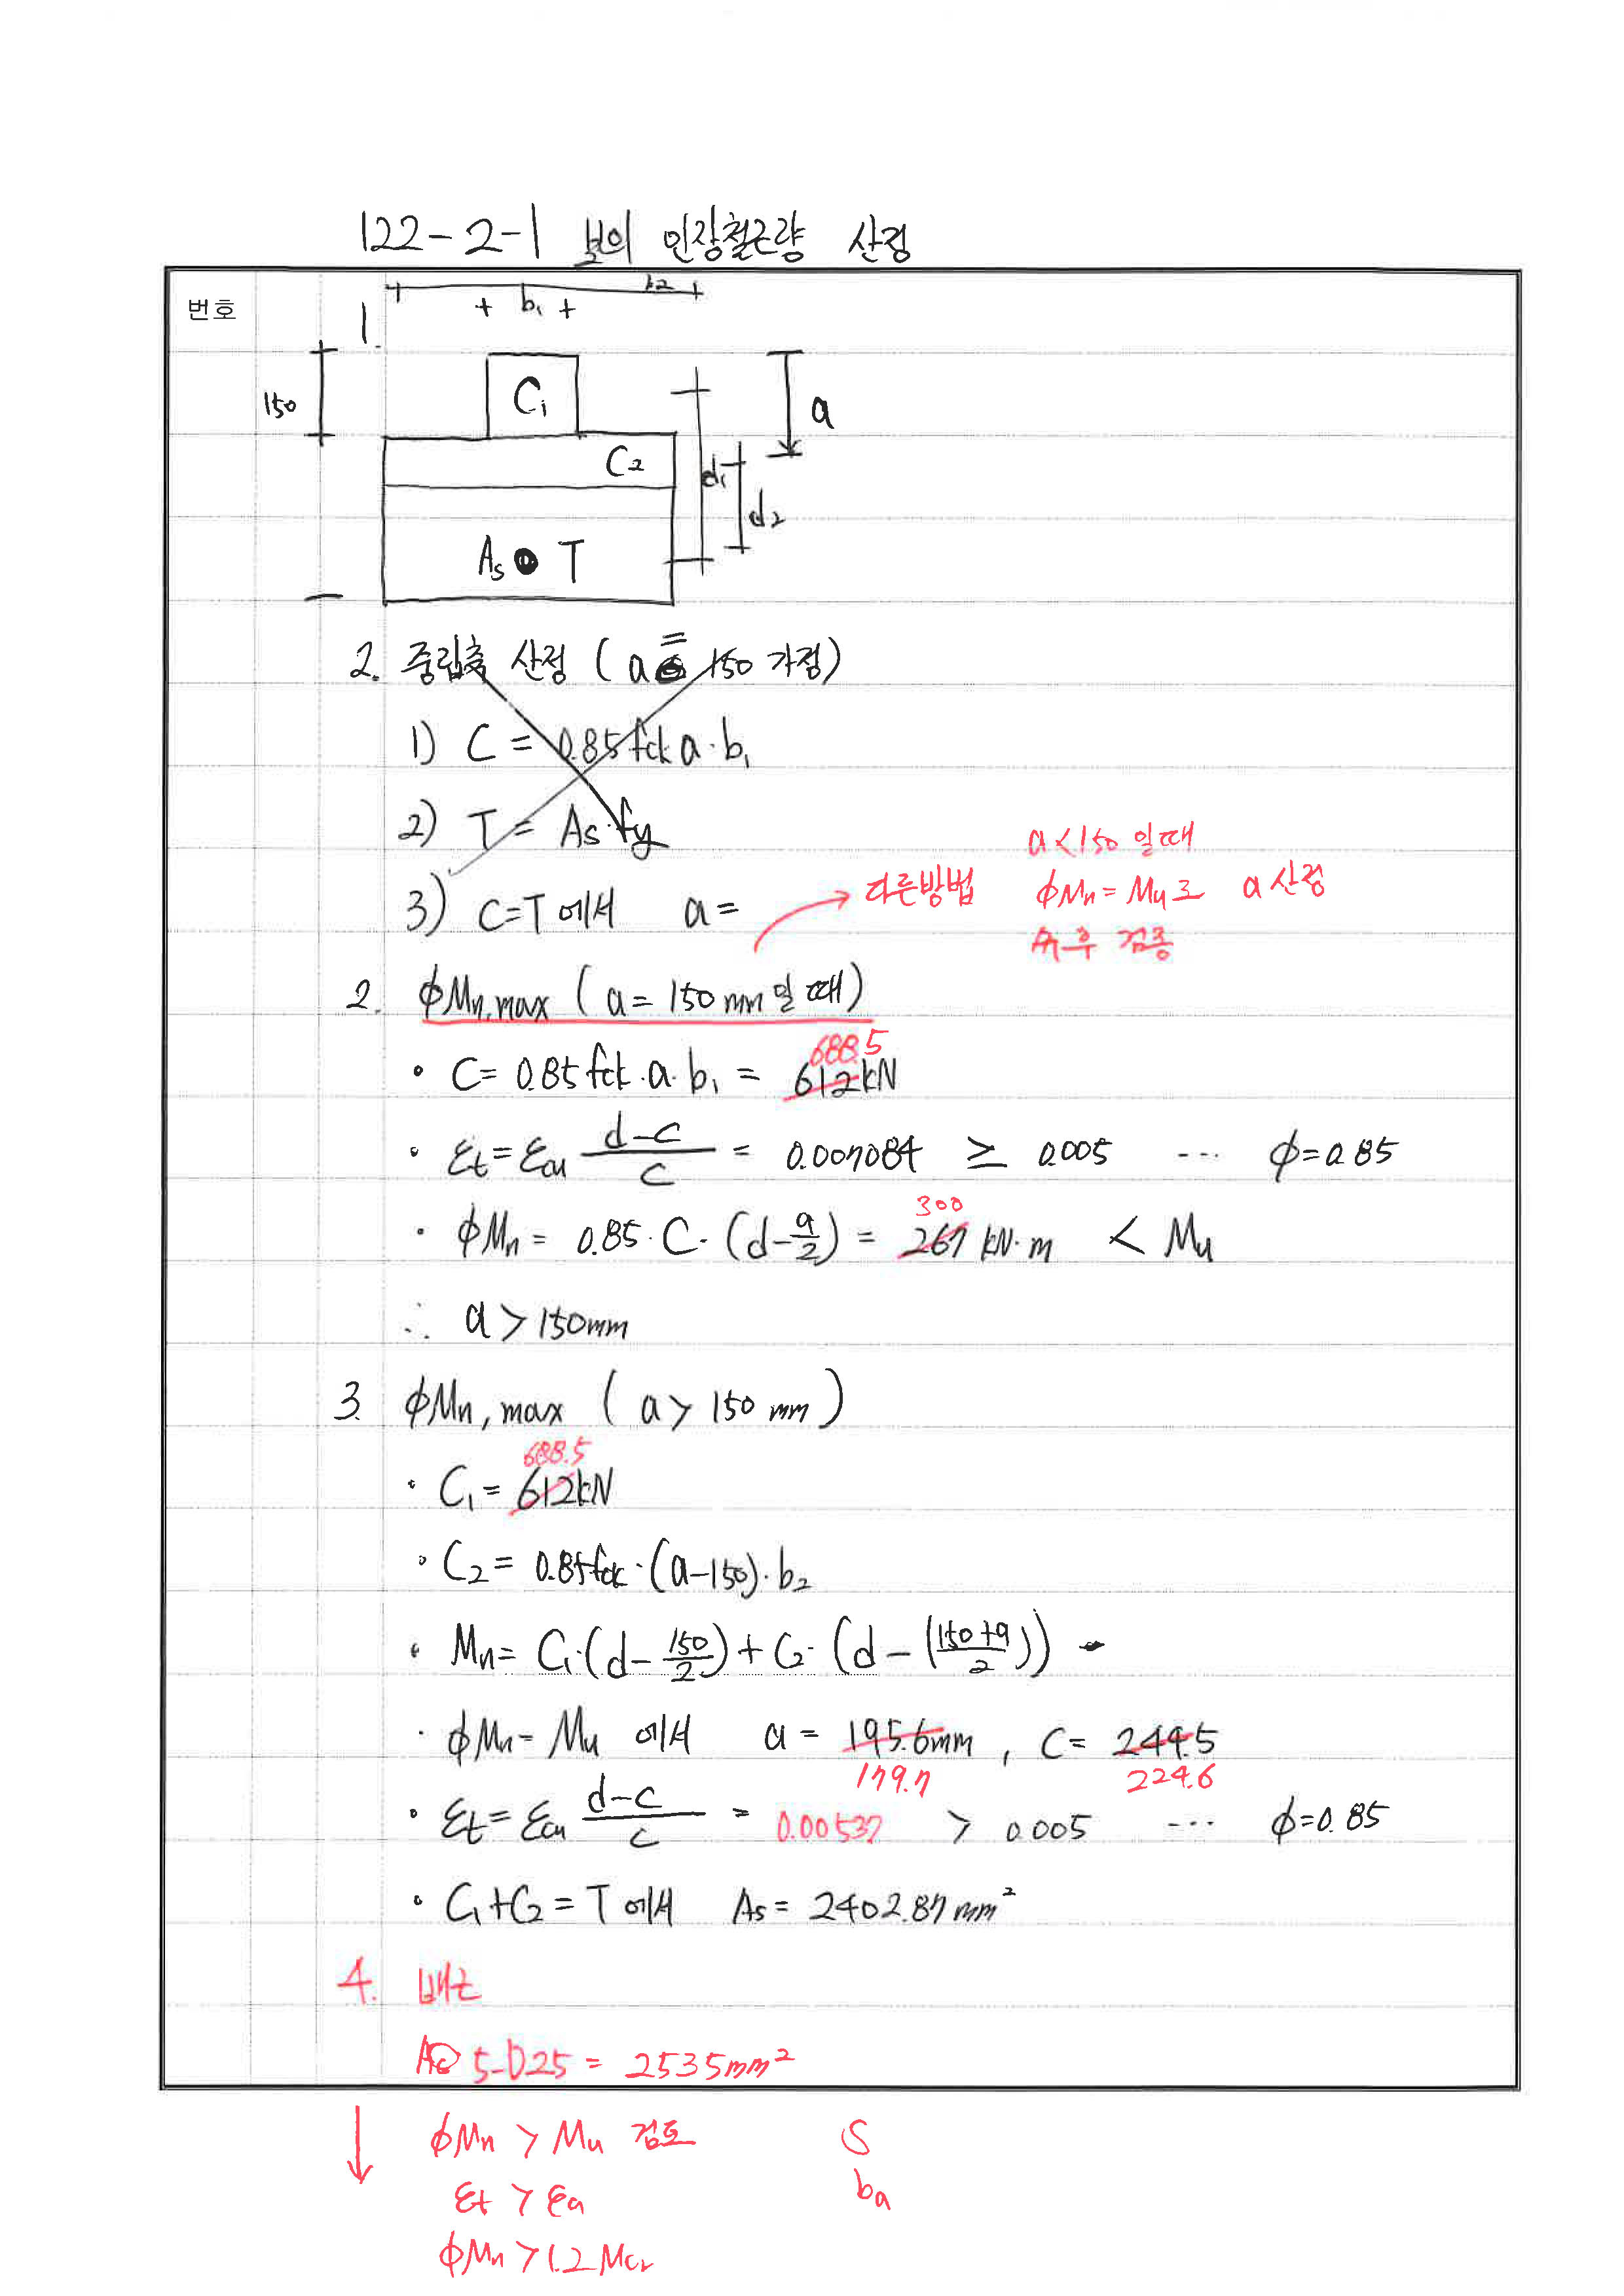 122-2-1 보의 인장철근량 산정
번호
1.
b₂
b₁
150
C₁
a
C₂
d₁
d₂
As T
2. 중립축 산정 (a = 150 가정)
1) C = 0.85fck a·b₁
2) T = As·fy
3) C=T에서 a=
다른방법
a<150일때
ϕMn=Mu로 a 산정
추후 검증
2. ϕMn,max (a=150mm일때)
688.5
· C=0.85fck·a·b₁ = 612kN
· εt=εcu (d-c)/c = 0.007084 ≥ 0.005 ··· ϕ=0.85
300
· ϕMn = 0.85·C·(d-a/2) = 267 kN·m < Mu
∴ a>150mm
3. ϕMn,max (a>150mm)
688.5
· C₁=612kN
· C₂=0.85fck·(a-150)·b₂
· Mn= C₁·(d-150/2)+C₂·(d-(150+a)/2))
· ϕMn=Mu 에서 a=195.6mm, C=244.5
179.7 224.6
· εt=εcu (d-c)/c = 0.00537 > 0.005 ··· ϕ=0.85
· C₁+C₂=T에서 As=2402.87mm²
4. 배근
5-D25=2535mm²
ϕMn > Mu 검토 S
εt > εa ba
ϕMn >1.2Mcr